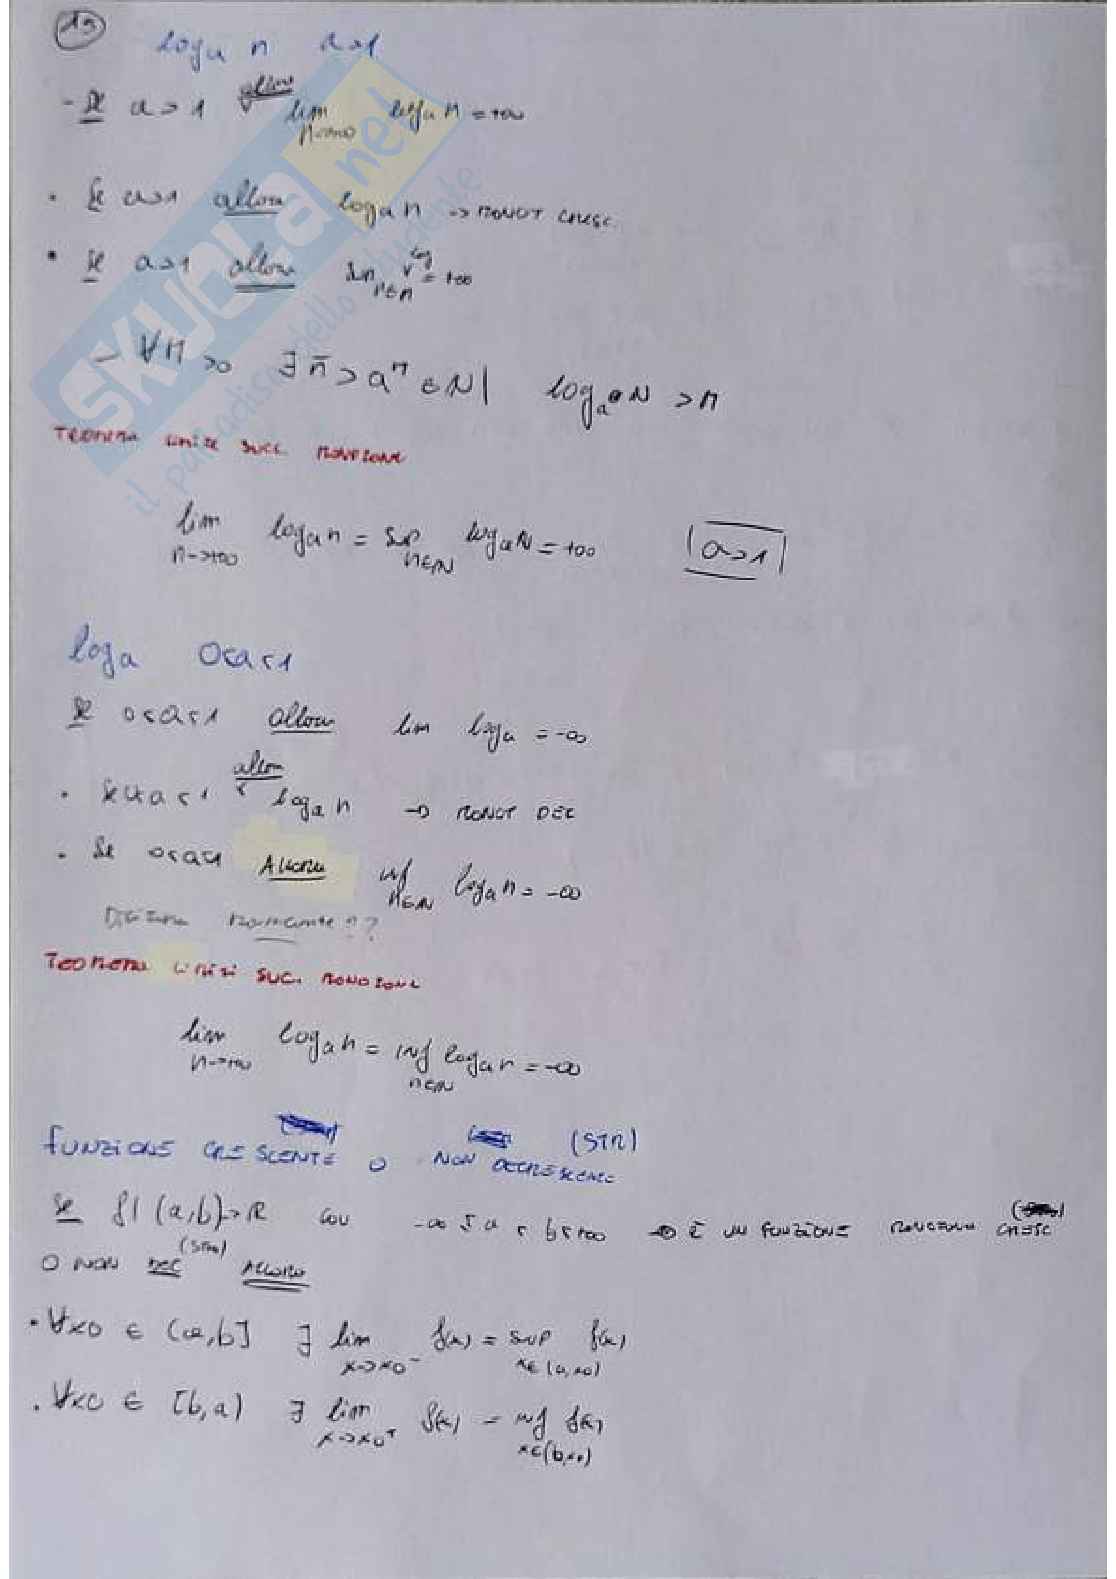 13
log a n a>1
- Se a>1 allora lim n→+∞ log a n = +∞
• Se a>1 allora log a n → MONOT CRESC.
• Se a>1 allora Sup n∈N log = +∞
- ∀M>0 ∃ n̄ > a^M ∈ N | log a N > M
TEOREMA LIMITE SUCC. MONOTONE
lim n→+∞ log a n = Sup n∈N log a N = +∞ |a>1|
log a 0<a<1
Se 0<a<1 allora lim log a = -∞
• Se 0<a<1 allora log a n → MONOT DEC
• Se 0<a<1 ALLORA inf n∈N log a n = -∞
TEOREMA LIMITI SUC. MONOTONE
lim n→+∞ log a n = inf n∈N log a n = -∞
FUNZIONE CRESCENTE O NON DECRESCENTE (STR)
Se f| (a,b)→R con -∞ ≤ a < b ≤ +∞ → È UN FUNZIONE MONOTONA CRESC
O NON DEC (STR) ALLORA
• ∀x0 ∈ (a,b] ∃ lim x→x0⁻ f(x) = sup x∈(a,x0) f(x)
• ∀x0 ∈ [b,a) ∃ lim x→x0⁺ f(x) = inf x∈(b,x0) f(x)
SKUOLA.net
il paradiso dello studente